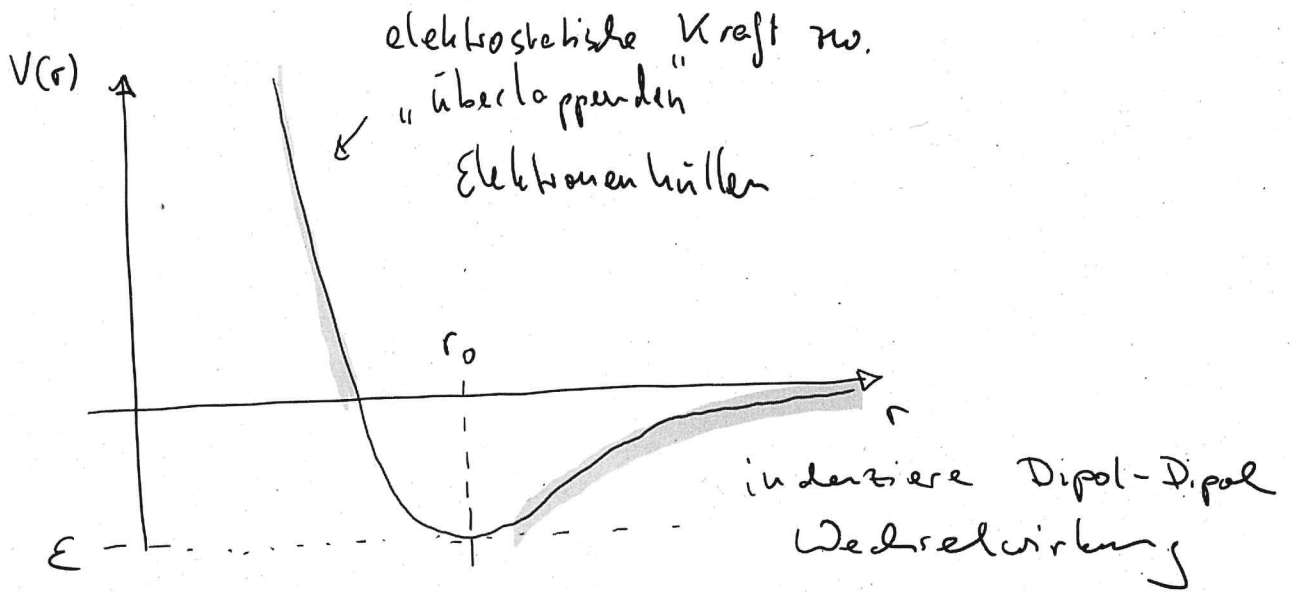 elektrostatische Kraft zw.
V(r)
„überlappenden“
Elektronenhüllen
r₀
r
induziere Dipol-Dipol
Wechselwirkung
ε